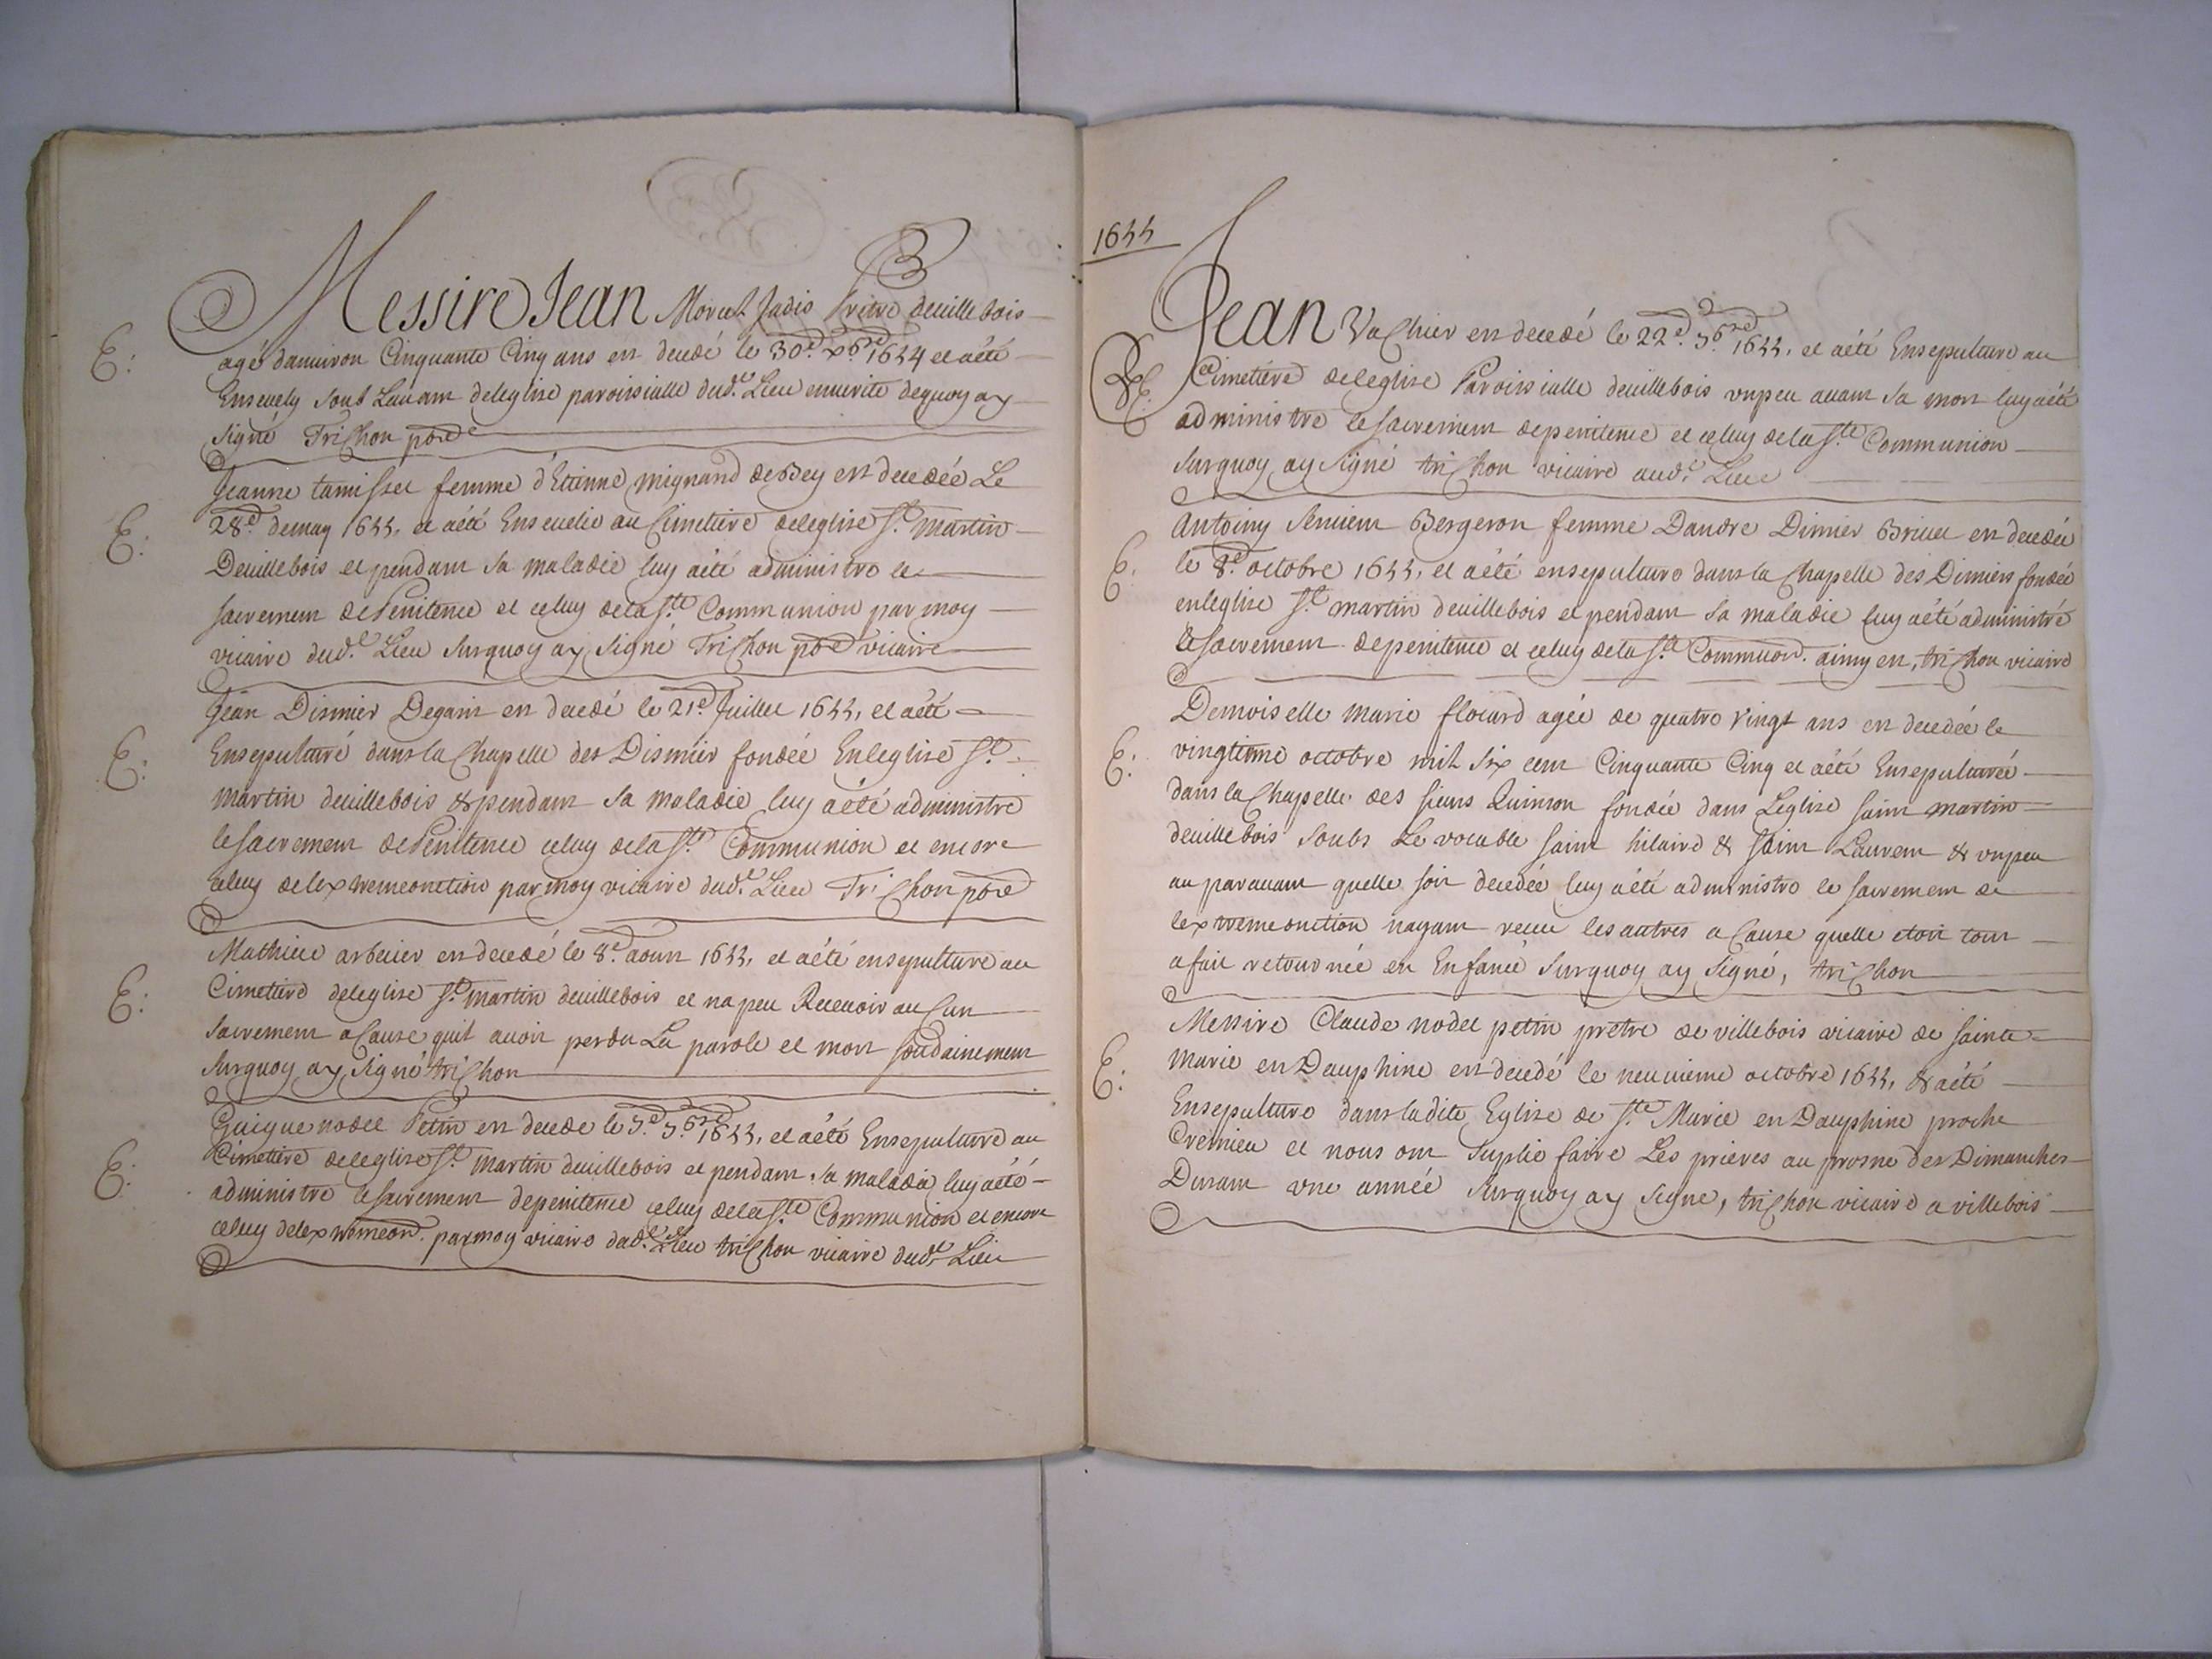 Messire Jean Morcel Jadis Prêtre deuillebois
E: agé danuiron Cinquante Cinq ans est decedé le 30e. xbre 1654 et aété
Enseuely soub Lauam deleglise paroissialle dud.t Lieu enuerite dequoy ay
signé Trichon pbre
Jeanne tamisset femme d'Etienne mignand deBey est decedée Le
E: 28e demay 1655, et aété Enseuelie au Cimetiere deleglise St. Martin
Deuillebois et pendant sa maladie luy aété administre le
sacrement dePenitence et celuy dela ste Communion par moy
vicaire dud.t Lieu surquoy ay signé Trichon pbre vicaire
Jean Dismier Degain est decedé le 21e. Juillet 1655, et aété
E: Ensepulturé dans la Chapelle des Dismier fondée Enleglise St.
Martin deuillebois & pendant sa maladie luy aété administre
le sacrement dePenitence celuy dela Ste Communion et encore
celuy delextremeonction par moy vicaire dud.t Lieu Trichon pbre
Mathieu arbeiier est decedé le 8e. aoust 1655, et aété ensepulture au
E: Cimetiere deleglise St. Martin deuillebois et na peu Receuoir aucun
sacrement a Cause quil auoit perdu La parole et mort soudainement
surquoy ay signé trichon
Guigue nodet Petin est decede le 5e. 7bre 1655, et aété Ensepulture au
E: Cimetiere deleglise St. Martin deuillebois et pendant sa maladie luy aété
administre lesacrement depenitence celuy dela ste Communion et encore
celuy delextremeon. par moy vicaire dud.t Lieu trichon vicaire dud.t Lieu
1655
Jean Vachier est decedé le 22e. 7bre 1655, et aété Ensepulture au
E: Cimetiére deleglise Paroissialle deuillebois vnpeu auant sa mort luy aété
administre le sacrement depenitence et celuy dela ste Communion
surquoy ay signé trichon vicaire aud.t Lieu
Antoiny Bergeron femme Dandre Dimier Brieu est decedée
E: le 8e. octobre 1655, et aété ensepulture dans la Chapelle des Dimiers fondée
enleglise St martin deuillebois et pendant sa maladie luy aété administré
le sacrement depenitence et celuy dela ste Communon. ainsy est, trichon vicaire
Demoiselle Marie flocard agée de quatre vingt ans est decedée le
E: vingtieme octobre mil six cent Cinquante Cinq et aété Ensepulturée
dans la Chapelle des sieurs Quinson fondée dans Leglise saint martin
deuillebois soubs Le vocable saint hilaire & saint Laurent & vnpeu
au parauant quelle soit decedée luy aété administre le sacrement de
lextremeonction nayant receu les autres a Cause quelle etoit tout
a fait retournée en Enfance surquoy ay signé, trichon
Messire Claude nodet petin prêtre de villebois vicaire de sainte
E: Marie en Dauphine est decedé le neuuieme octobre 1655, & aété
Ensepulture dans ladite Eglise de Ste Marie en Dauphine proche
Crémieu et nous ont suplié faire Les prieres au prosne des Dimanches
Durant vne année surquoy ay signe, trichon vicaire a villebois